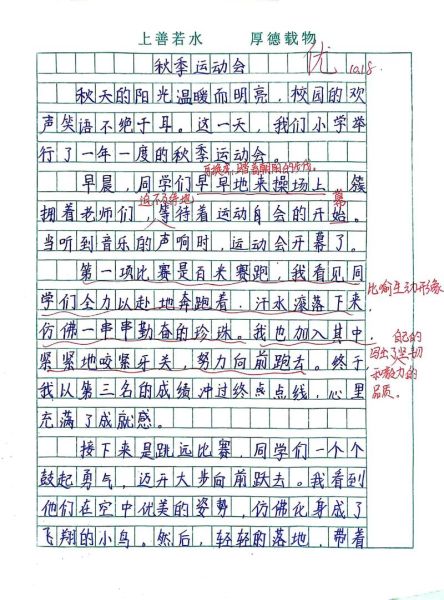 上善若水 厚德载物
秋季运动会 优 10.18.
秋天的阳光温暖而明亮，校园的欢
声笑语不绝于耳。这一天，我们小学举
行了一年一度的秋季运动会。
早晨，同学们早早地来操场上，簇
迫不及待地 幕
拥着老师们，等待着运动自会的开始。
当听到音乐的声响时，运动会开幕了。
第一项比赛是百米赛跑，我看见同
学们全力以赴地奔跑着，汗水滚落下来，
比喻生动形象，
仿佛一串串勤奋的珍珠。我也加入其中，
自己的
紧紧地咬紧牙关，努力向前跑去。终于
和毅力的
我以第三名的成绩冲过终点点线，心里
品质。
充满了成就感。
接下来是跳远比赛，同学们一个个
鼓起勇气，迈开大步向前跃去。我看到
他们在空中优美的姿势，仿佛化身成了
飞翔的小鸟。然后，轻轻的落地，带着